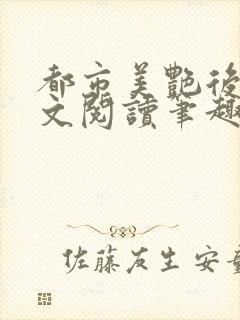 都市美艷後
文閱讀筆趣
佐藤友生 安